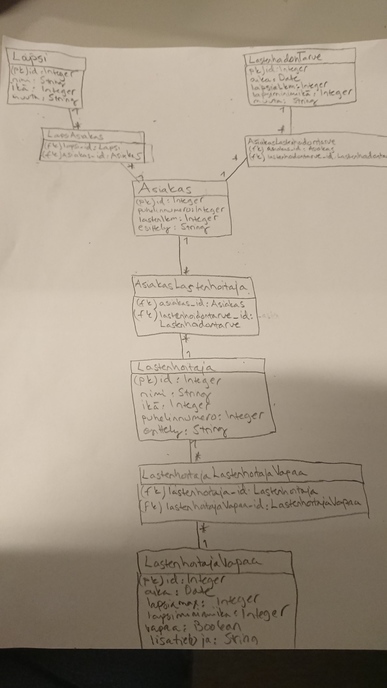 Lapsi
(pk) id: Integer
nimi: String
ikä: Integer
muuta: String
LastenhadonTarve
(pk) id: Integer
aika: Date
lapsialkm: Integer
lapsiminimikä: Integer
muuta: String
1
1
*
*
LapsiAsiakas
(fk) lapsi_id: Lapsi
(fk) asiakas_id: Asiakas
AsiakasLastenhadontarve
(fk) asiakas_id: Asiakas
(fk) lastenhadontarve_id: Lastenhadontarve
*
1
1
*
Asiakas
(pk) id: Integer
puhelinnumero: Integer
lastenlkm: Integer
esittely: String
1
*
AsiakasLastenhoitaja
(fk) asiakas_id: Asiakas
(fk) lastenhadontarve_id:
Lastenhadontarve
*
1
Lastenhoitaja
(pk) id: Integer
nimi: String
ikä: Integer
puhelinnumero: Integer
esittely: String
1
*
LastenhoitajaLastenhoitajaVapaa
(fk) lastenhoitaja_id: Lastenhoitaja
(fk) lastenhoitajaVapaa_id: LastenhoitajaVapaa
*
1
LastenhoitajaVapaa
(pk) id: Integer
aika: Date
lapsiamax: Integer
lapsiminimikä: Integer
vapaa: Boolean
lisätietoja: String